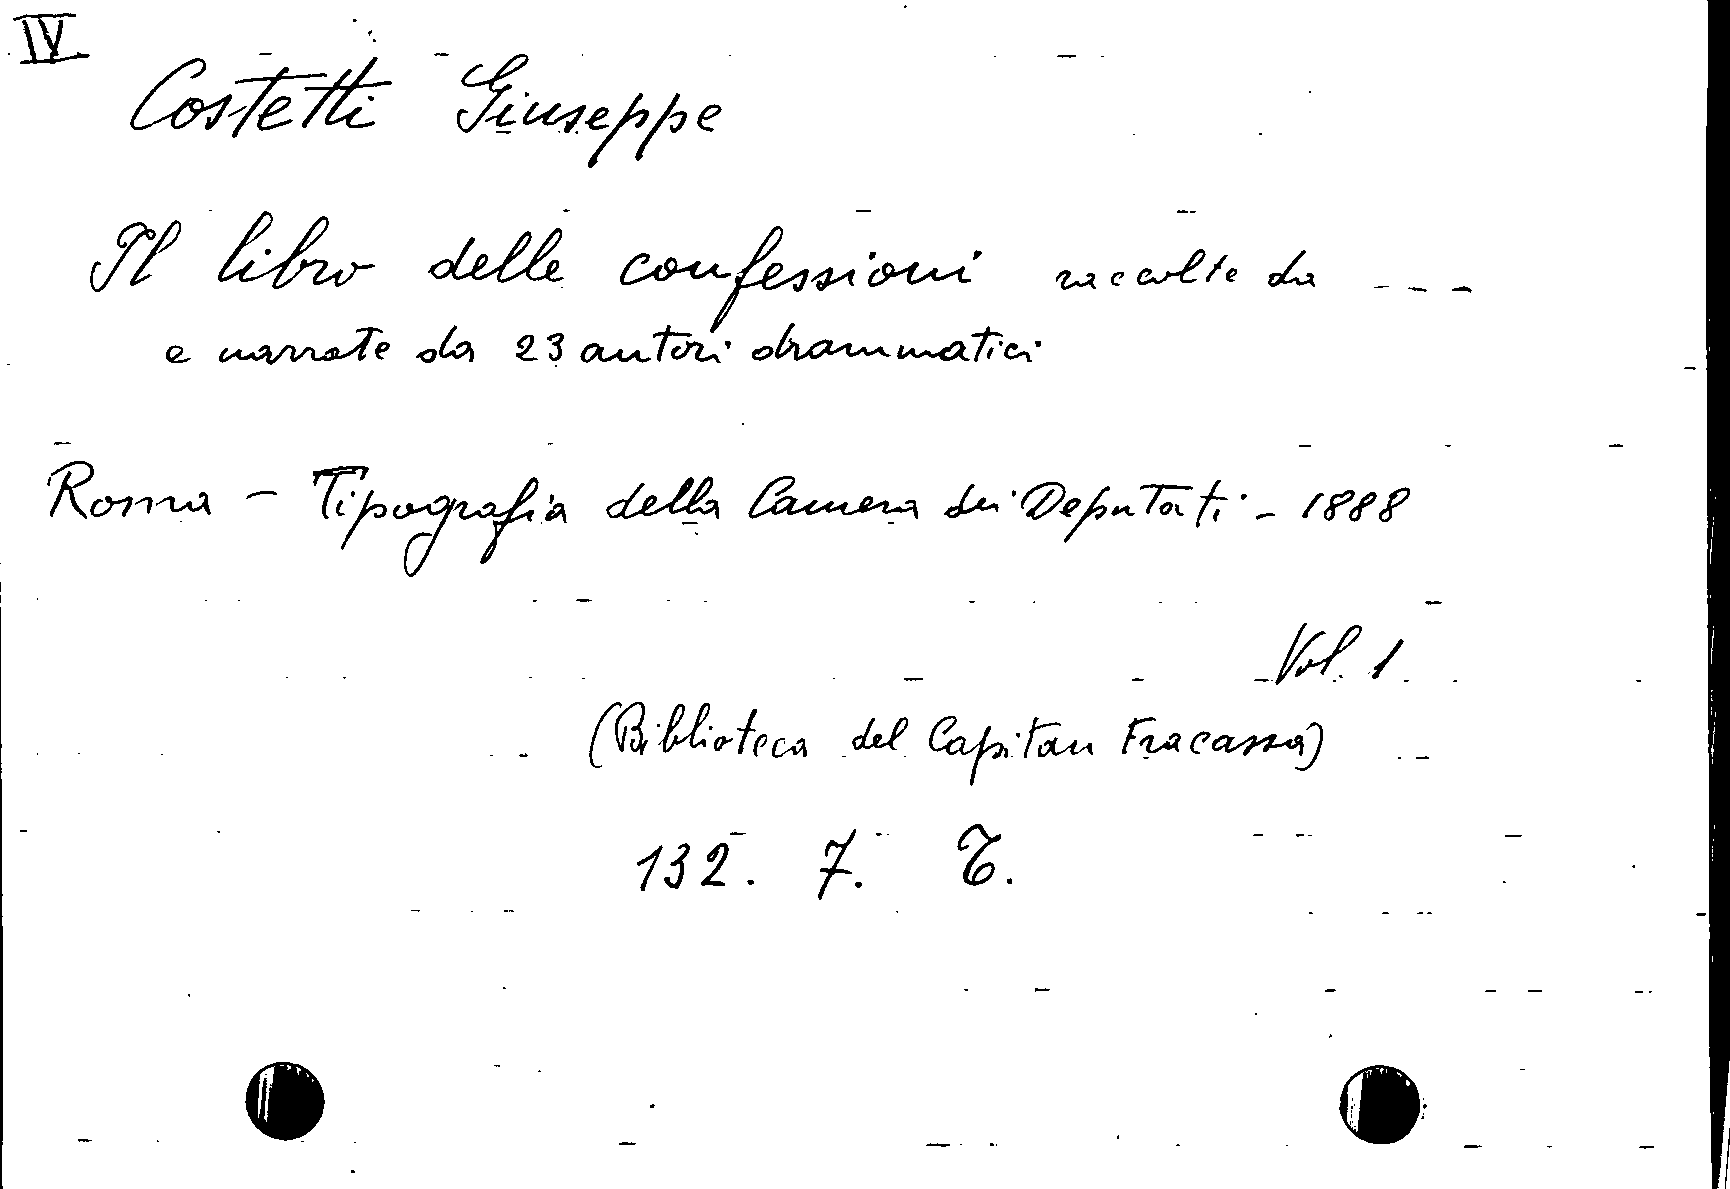 IV
Costetti Giuseppe
Il libro delle confessioni raccolte da ---
e narrate da 23 autori drammatici
Roma - Tipografia della Camera dei Deputati - 1888
Vol. 1
(Biblioteca del Capitan Fracassa)
132. 7. T.